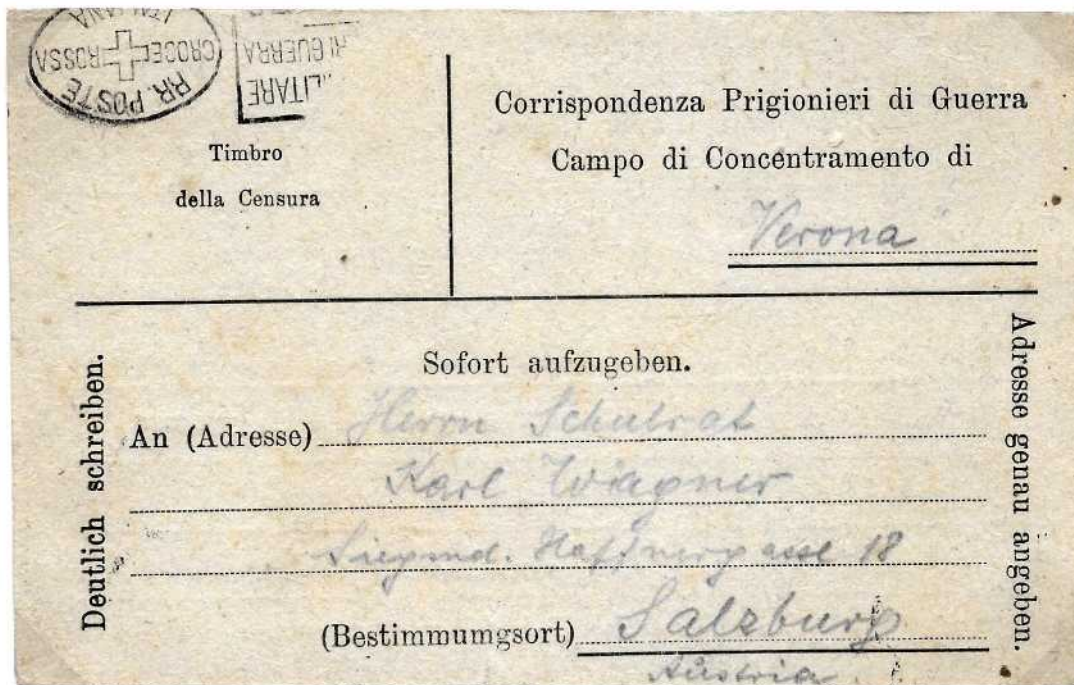 RR. POSTE
CROCE ROSSA
ITALIANA
LITARE
DI GUERRA
Timbro
della Censura
Corrispondenza Prigionieri di Guerra
Campo di Concentramento di
Verona
Deutlich schreiben.
Sofort aufzugeben.
An (Adresse) Herrn Schulrat
Karl Wagner
Siegmd. Haffnergasse 18
(Bestimmumgsort) Salzburg
Austria
Adresse genau angeben.